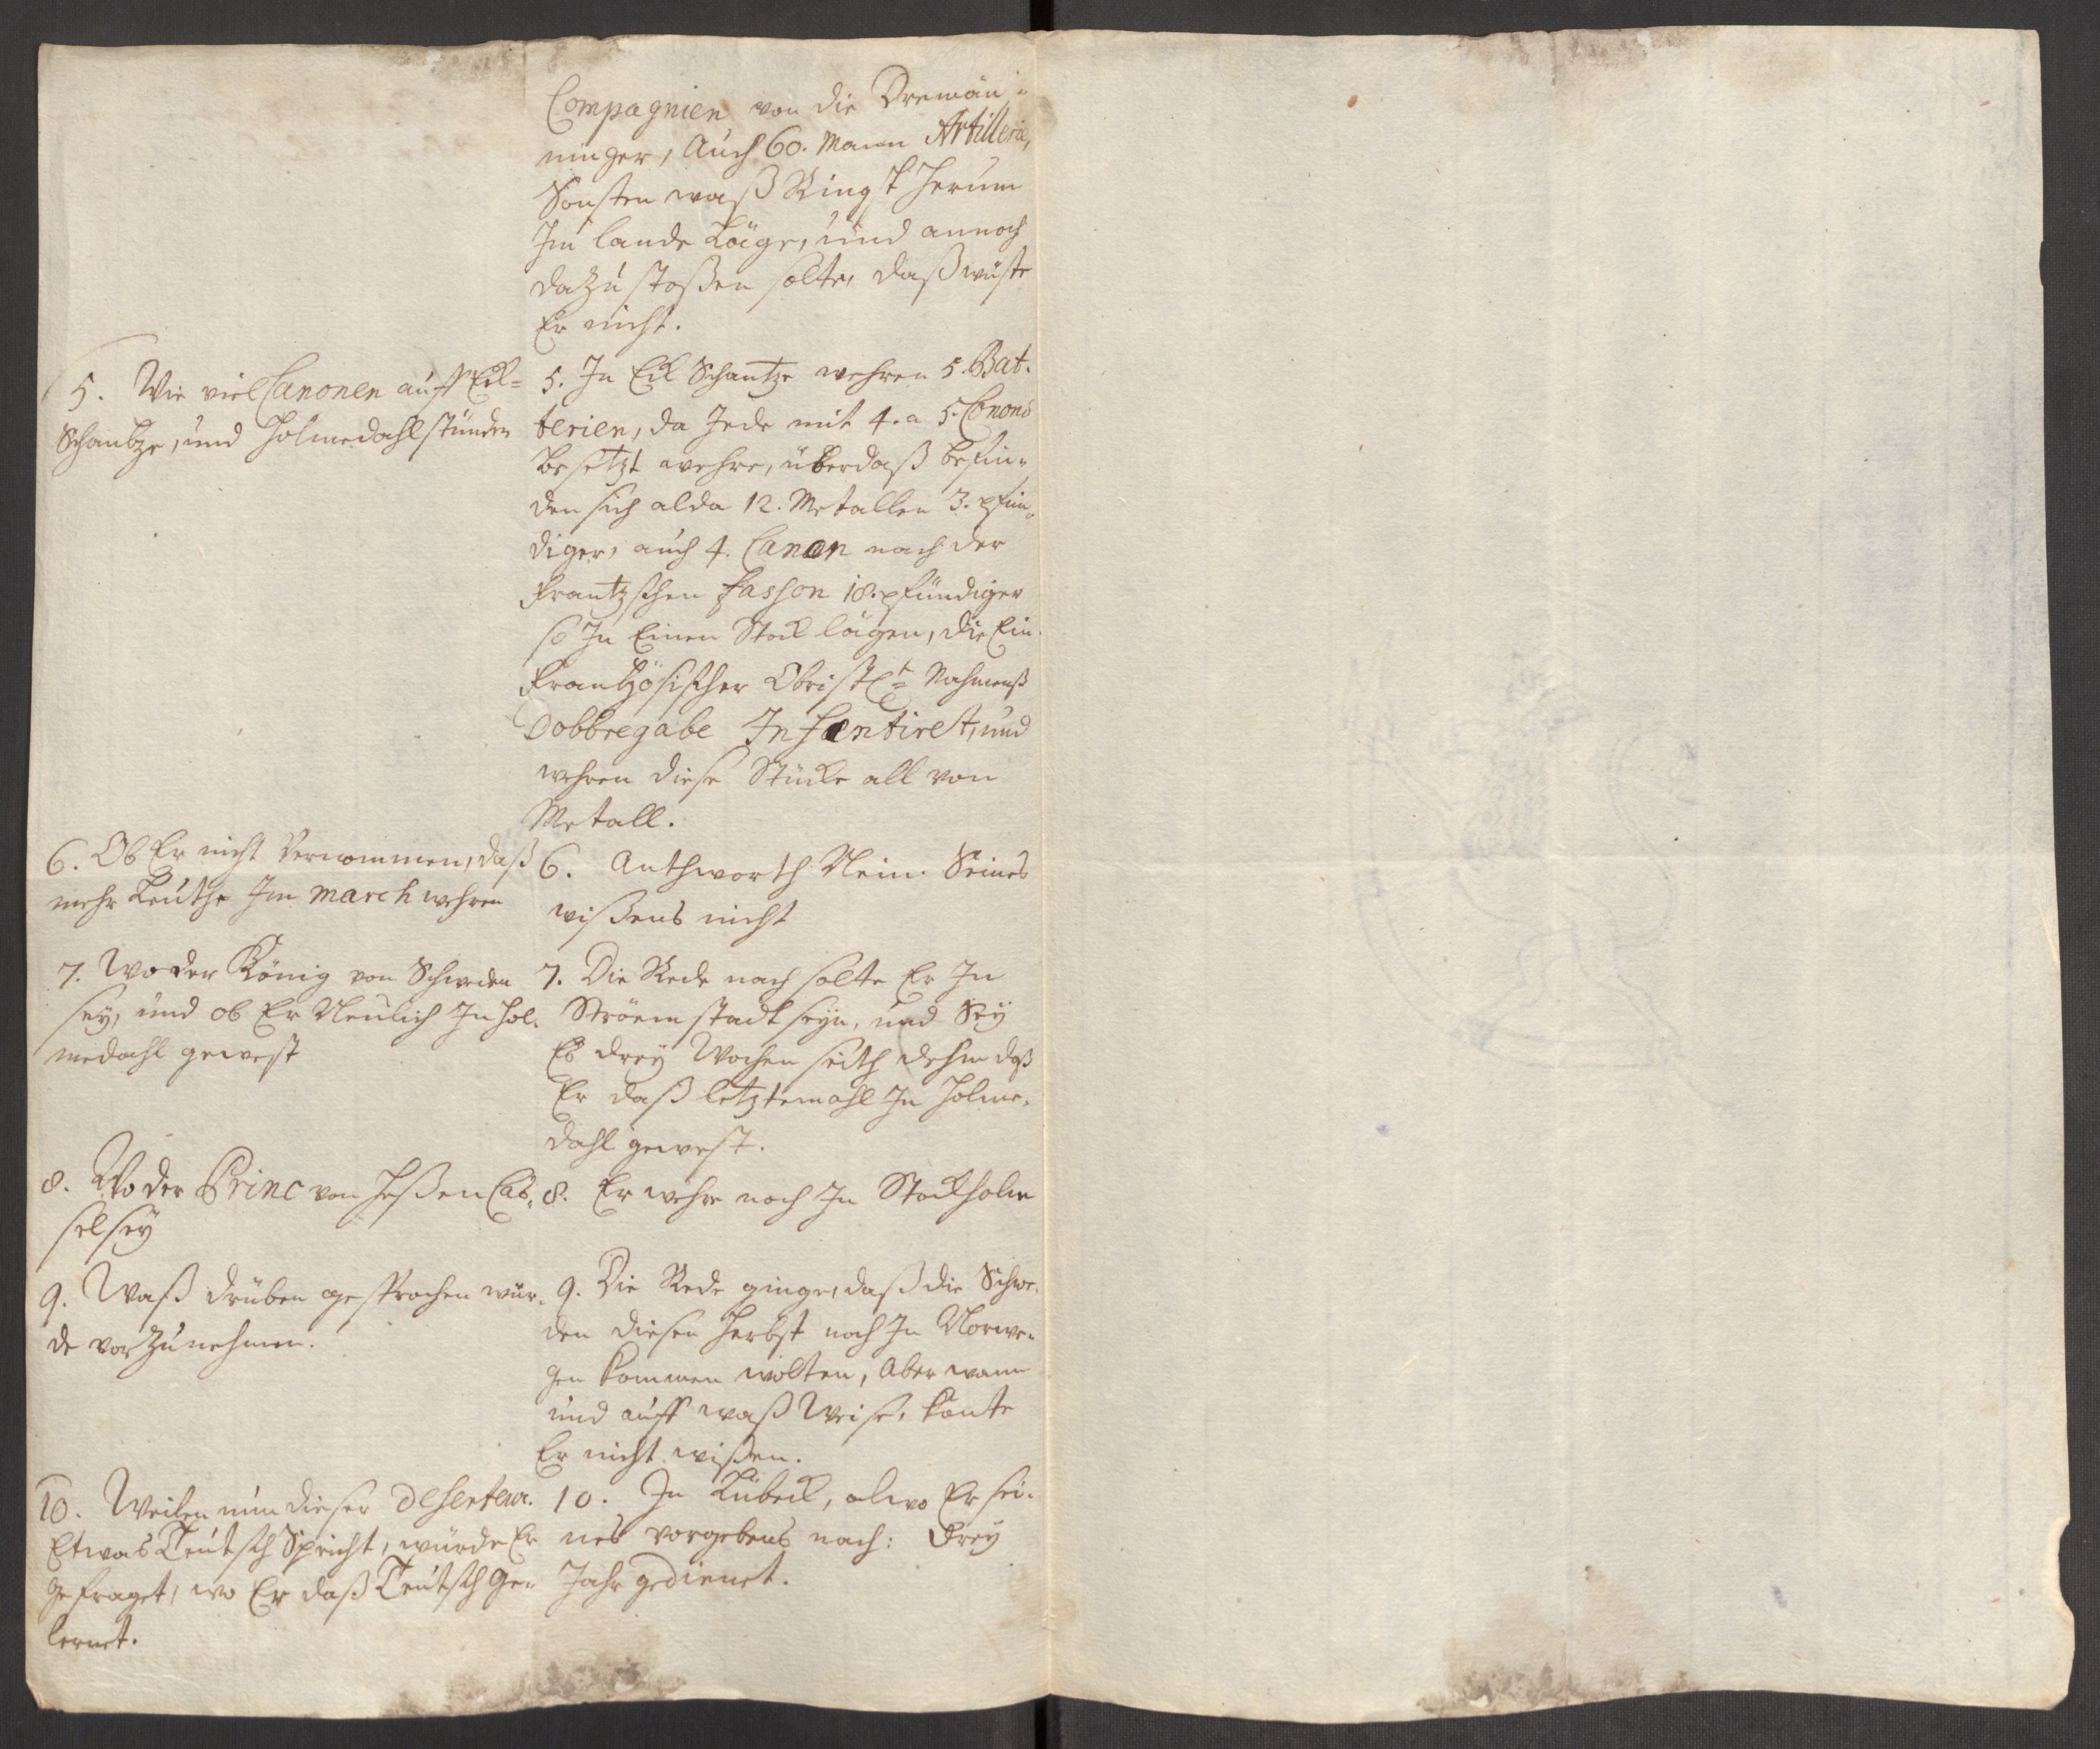 Compagnien von die Dremän-
ninger, Auch 60. Mann Artillerie,
Sonsten waß Ringst herum
Im lande Läge, und annoch
dazu stoßen solte, daß wüste
Er nicht.
5. Wie viel Canonen auff Eck-
Schantze, und Holmedahl stünden
5. In Eck Schantze wehren 5. Bat-
terien, da Jede mit 4. a 5. Conons
besetzt wehre, überdaß befin-
den sich alda 12. Metallen 3. pfün-
diger, auch 4. Canon nach der
Frantzschen fasson 18. pfündiger
so In Einen Stock lägen, die Ein
Frantzösischer Obrist Lt Nahmenß
Dobbregabe Infantiret, und
wehren diese Stücke all von
Metall.
6. Ob Er nicht Vernommen, daß
mehr Leuthe Im march wehren
6. Anthworth Nein. Seines
wißens nicht
7. Wo der König von Schweden
sey, und ob Er Neulich In Hol-
medahl gewest
7. Die Rede nach solte Er In
Ströemstadt seyn, und Sey
Es drey Wochen seith dehm daß
Er daß letztemahl In Holme-
dahl gewest.
8. Wo der Princ von Heßen Cas-
sel sey
8. Er wehre noch In Stockholm
9. Waß drüben gesprochen wür-
de vorzunehmen.
9. Die Rede ginge, daß die Schwe-
den diesen Herbst noch In Norwe-
gen kommen wolten, Aber wann
und auff waß Weise, könte
Er nicht wißen.
10. Weilen nun dieser Deserteur.
Etwas Teutsch Spricht, würde Er
gefraget, wo Er daß Teutsch Ge-
lernet.
10. In Lübeck, alwo Er sei-
nes vorgebens nach: drey
Jahr gedienet.